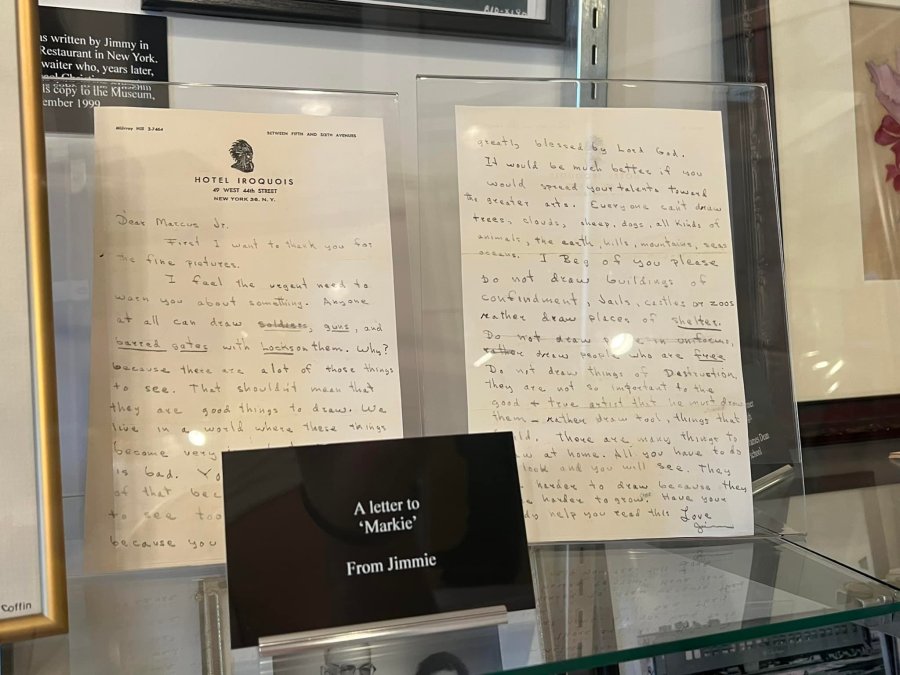 as written by Jimmy in
Restaurant in New York.
waiter who, years later,
is copy to the Museum,
ember 1999.
MUrray Hill 2-7464
BETWEEN FIFTH AND SIXTH AVENUES
HOTEL IROQUOIS
49 WEST 44th STREET
NEW YORK 36, N.Y.
Dear Marcus Jr.
First I want to thank you for
the fine pictures.
I feel the urgent need to
warn you about something. Anyone
at all can draw soldiers, guns, and
barred gates with Locks on them. Why?
because there are alot of those things
to see. That shouldn't mean that
they are good things to draw. We
live in a world where these things
become very
is bad. Yo
of that bec
to see too
because you
greatly blessed by Lord God.
It would be much better if you
would spread your talents toward
the greater arts. Everyone can't draw
trees, clouds, sheep, dogs, all kinds of
animals, the earth, hills, mountains, seas
oceans. I Beg of you please
Do not draw buildings of
confindment, Jails, castles or zoos
rather draw places of shelter.
Do not draw in uniforms,
rather draw people who are free
Do not draw things of Destruction,
they are not so important to the
good + true artist that he must draw
them - rather draw tool, things that
ld. There are many things to
w at home. All you have to do
look and you will see. They
harder to draw because they
e harder to grow. Have your
dy help you read this Love
Jim
A letter to
'Markie'
From Jimmie
Coffin
ames Dean
chool